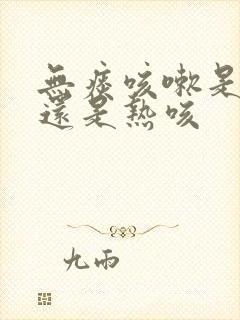 無痰咳嗽是
還是熱咳
九雨